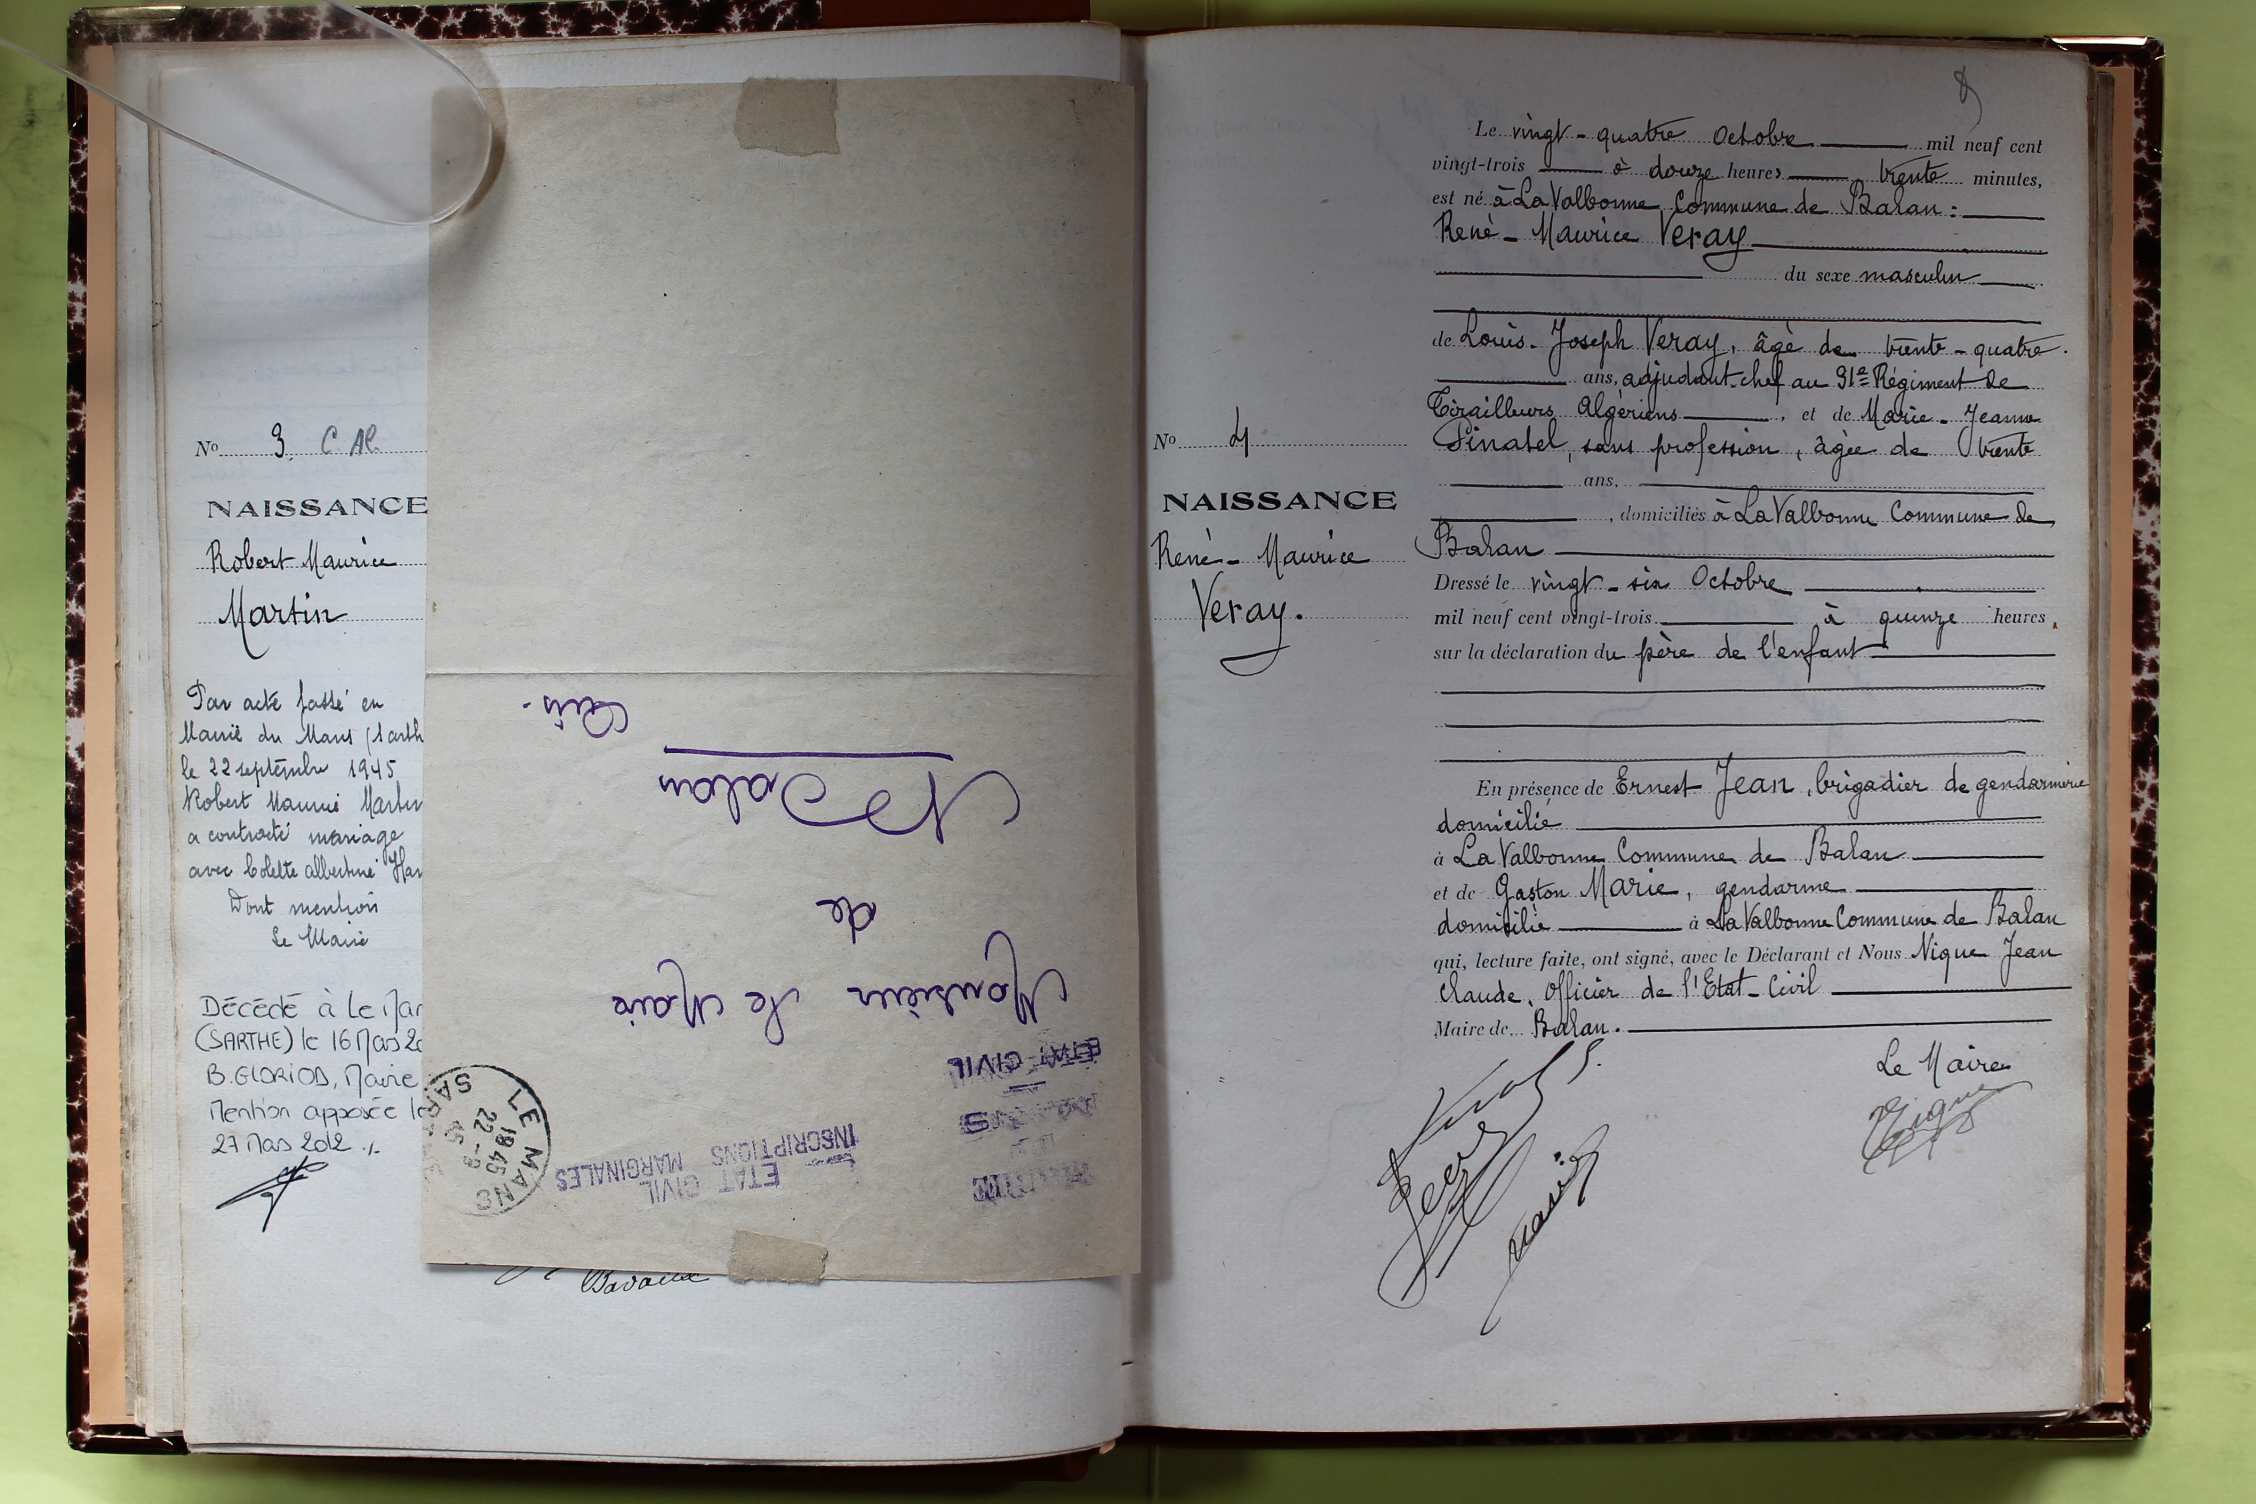 No 3. C Al.
NAISSANCE
Robert Maurice
Martin
Par acte passé en
Mairie du Mans (Sarth
le 22 septembre 1945
Robert Maurice Martin
a contracté mariage
avec Colette Albertine
Dont mention
Le Maire
DÉCÉDÉ à LE
(SARTHE) le 16 Mars
B. GLORIOD, Maire
Mention apposée le
27 Mars 2012 ./.
Monsieur le Maire
de
Balan
Ain.
ETAT CIVIL
ETAT CIVIL
INSCRIPTIONS
MARGINALES
LE MANS
18 45
22 - 9
45
SAR
8
Le vingt-quatre Octobre mil neuf cent
vingt-trois à douze heures trente minutes,
est né à La Valbonne Commune de Balan :
René-Maurice Veray
du sexe masculin
de Louis-Joseph Veray, âgé de trente-quatre
ans, adjudant-chef au 31e Régiment de
Tirailleurs Algériens, et de Marie-Jeanne
Pinatel, sans profession, âgée de trente
ans,
, domiciliés à La Valbonne Commune de
Balan
Dressé le vingt-six Octobre
mil neuf cent vingt-trois à quinze heures,
sur la déclaration du père de l'enfant
No 4
NAISSANCE
René-Maurice
Veray.
En présence de Ernest Jean, brigadier de gendarmerie
domicilié
à La Valbonne Commune de Balan
et de Gaston Marie, gendarme
domicilié à La Valbonne Commune de Balan
qui, lecture faite, ont signé, avec le Déclarant et Nous Nique Jean
Claude, Officier de l'Etat-Civil
Maire de Balan.
Le Maire
Nique